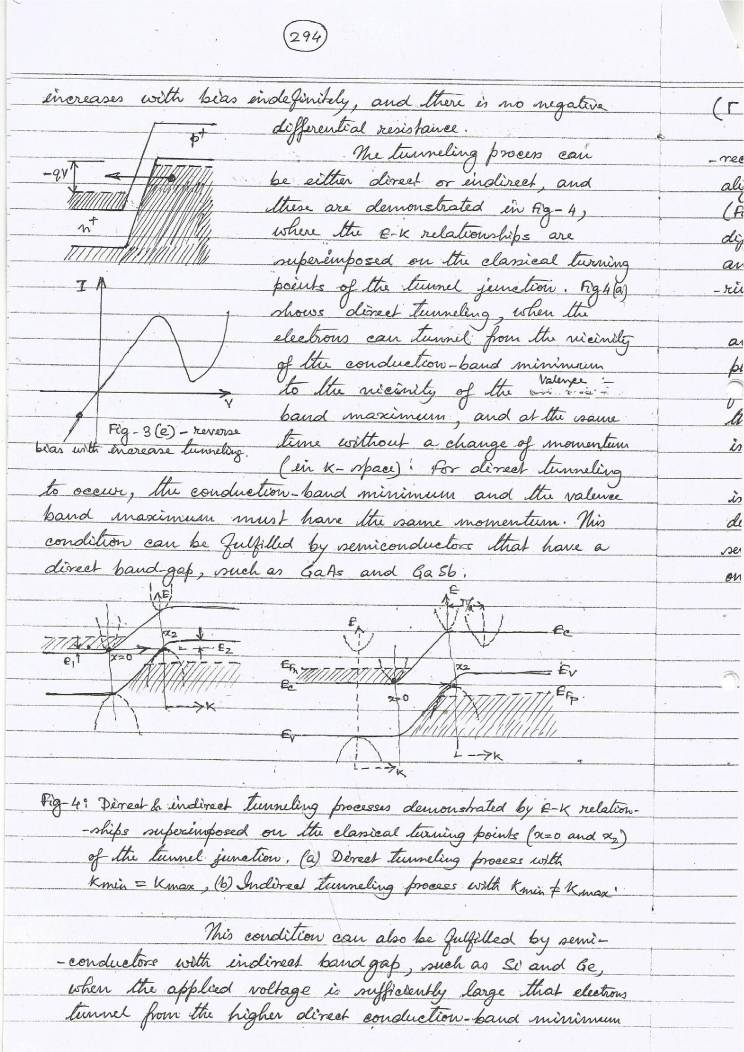 294
increases with bias indefinitely, and there is no negative
differential resistance.
The tunneling process can
be either direct or indirect, and
these are demonstrated in Fig-4,
where the E-K relationships are
superimposed on the classical turning
points of the tunnel junction. Fig 4(a)
shows direct tunneling, when the
electrons can tunnel from the vicinity
of the conduction-band minimum
to the vicinity of the Valence
band maximum, and at the same
time without a change of momentum
(in K-space). For direct tunneling
p+
-qV
n+
I
V
Fig-3(e) - reverse
bias with increase tunneling.
to occur, the conduction-band minimum and the valence
band maximum must have the same momentum. This
condition can be fulfilled by semiconductors that have a
direct band-gap, such as GaAs and GaSb.
E
x2
E2
e1
x=0
K
E
E
Ec
EFn
Ec
x=0
x2
Ev
EFp
Ev
K
K
Fig-4: Direct & indirect tunneling processes demonstrated by E-K relation-
-ships superimposed on the classical turning points (x=0 and x2)
of the tunnel junction. (a) Direct tunneling process with
Kmin = Kmax, (b) Indirect tunneling process with Kmin ≠ Kmax.
This condition can also be fulfilled by semi-
-conductors with indirect bandgap, such as Si and Ge,
when the applied voltage is sufficiently large that electrons
tunnel from the higher direct conduction-band minimum